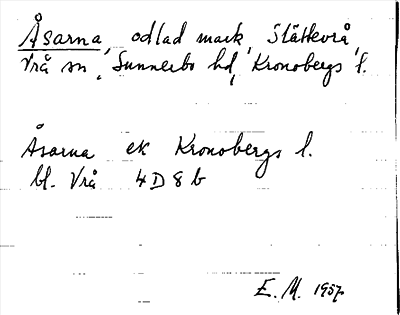 Åsarna, odlad mark, Slätkvrå,
Vrå sn, Sunnerbo hd, Kronobergs l.
Åsarna ek Kronobergs l.
bl. Vrå 4D8b
E. M. 1957